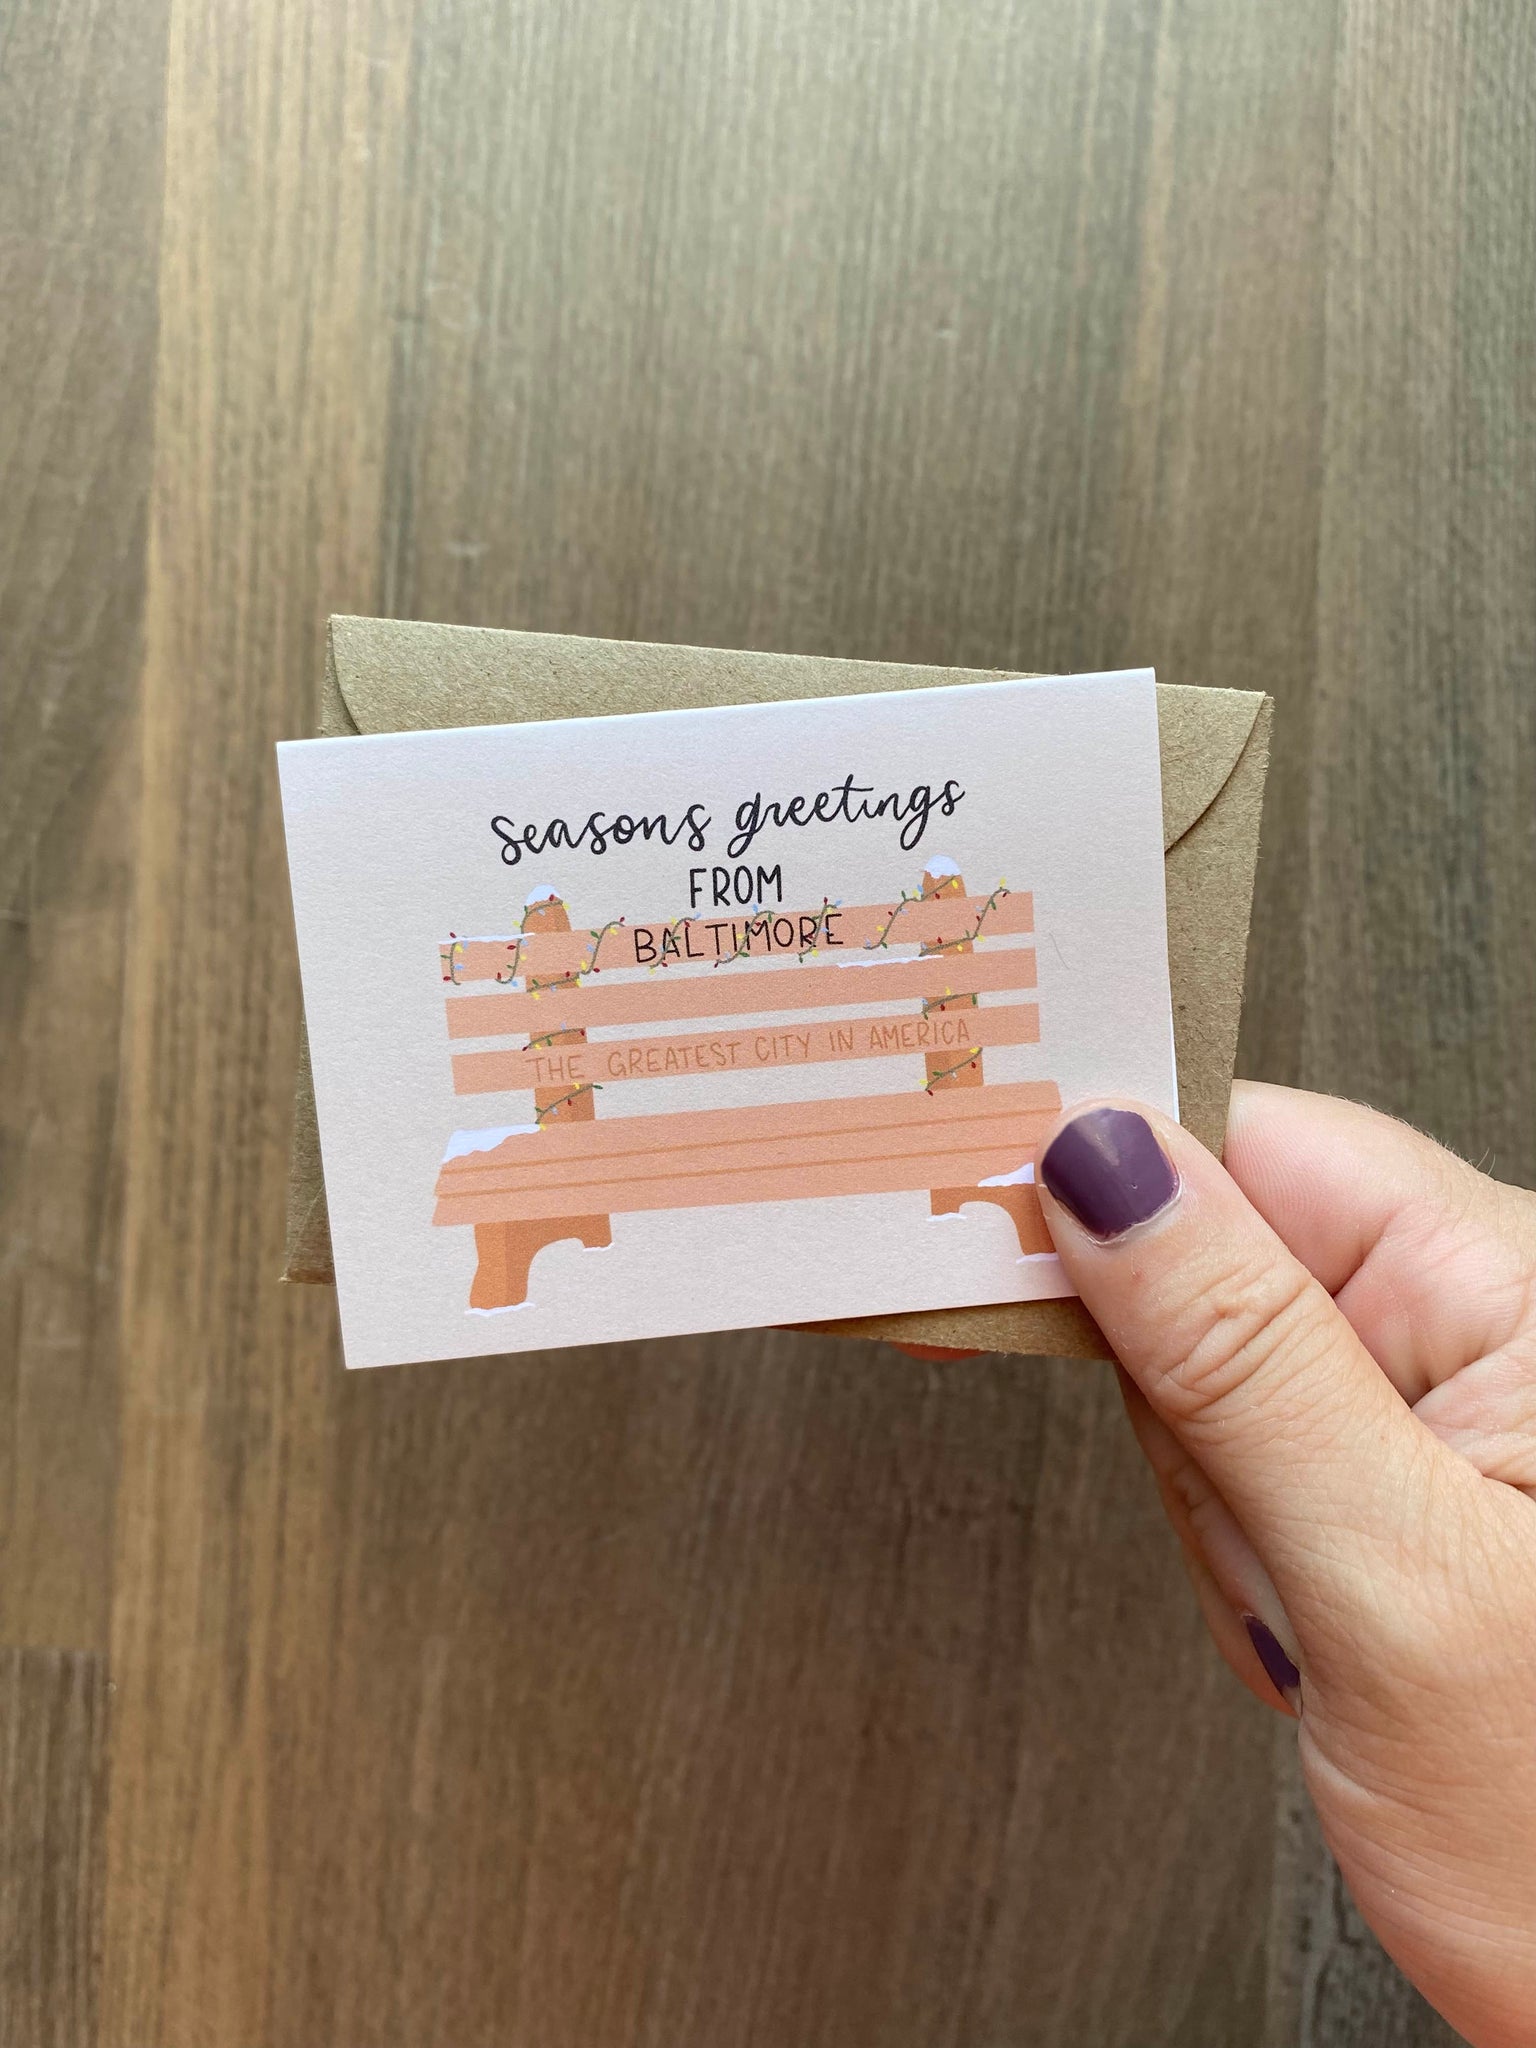 seasons greetings
FROM
BALTIMORE
THE GREATEST CITY IN AMERICA